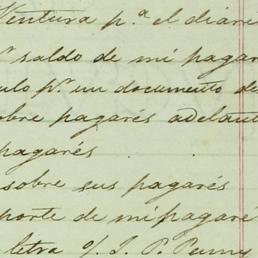 Ventura p.ª el diari
saldo de mi pagar
ulo p.r un documento de
obre pagarés adelant
pagarés
sobre sus pagarés
porte de mi pagaré
letra o/. J. P.